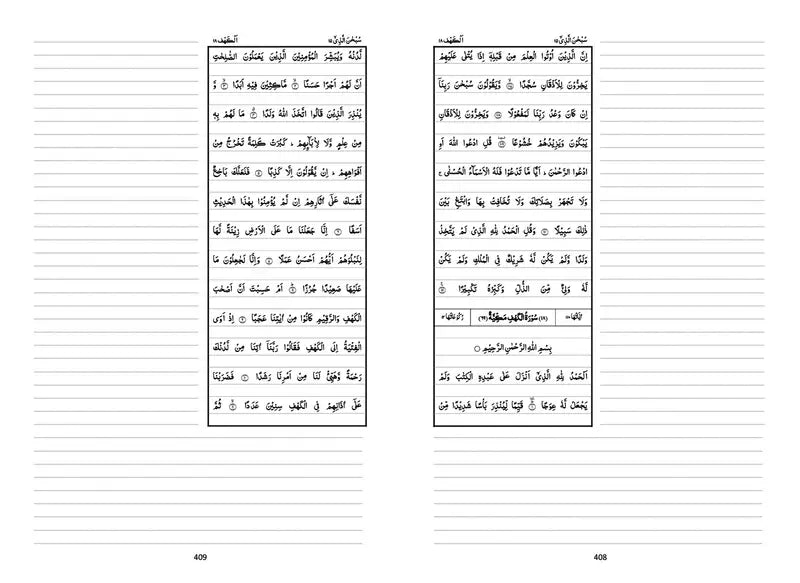 سُبْحٰنَ الَّذِیْۤ ۱۵
اَلْكَهْف ۱۸
اِنَّ الَّذِیْنَ اُوْتُوا الْعِلْمَ مِنْ قَبْلِهٖۤ اِذَا یُتْلٰى عَلَیْهِمْ
یَخِرُّوْنَ لِلْاَذْقَانِ سُجَّدًا ۝ وَّیَقُوْلُوْنَ سُبْحٰنَ رَبِّنَاۤ
اِنْ كَانَ وَعْدُ رَبِّنَا لَمَفْعُوْلًا ۝ وَیَخِرُّوْنَ لِلْاَذْقَانِ
یَبْكُوْنَ وَیَزِیْدُهُمْ خُشُوْعًا ۝ قُلِ ادْعُوا اللّٰهَ اَوِ
ادْعُوا الرَّحْمٰنَ ؕ اَیًّا مَّا تَدْعُوْا فَلَهُ الْاَسْمَآءُ الْحُسْنٰى ۚ
وَلَا تَجْهَرْ بِصَلَاتِكَ وَلَا تُخَافِتْ بِهَا وَابْتَغِ بَیْنَ
ذٰلِكَ سَبِیْلًا ۝ وَقُلِ الْحَمْدُ لِلّٰهِ الَّذِیْ لَمْ یَتَّخِذْ
وَلَدًا وَّلَمْ یَكُنْ لَّهٗ شَرِیْكٌ فِی الْمُلْكِ وَلَمْ یَكُنْ
لَّهٗ وَلِیٌّ مِّنَ الذُّلِّ وَكَبِّرْهُ تَكْبِیْرًا ۝
اٰیَاتُهَا ۱۱۰ (۱۸) سُوْرَةُ الْكَهْفِ مَكِّیَّةٌ (۶۹) رُكُوْعَاتُهَا ۱۲
بِسْمِ اللّٰهِ الرَّحْمٰنِ الرَّحِیْمِ ۝
اَلْحَمْدُ لِلّٰهِ الَّذِیْۤ اَنْزَلَ عَلٰى عَبْدِهِ الْكِتٰبَ وَلَمْ
یَجْعَلْ لَّهٗ عِوَجًا ۝ قَیِّمًا لِّیُنْذِرَ بَاْسًا شَدِیْدًا مِّنْ
408
سُبْحٰنَ الَّذِیْۤ ۱۵
اَلْكَهْف ۱۸
لَّدُنْهُ وَیُبَشِّرَ الْمُؤْمِنِیْنَ الَّذِیْنَ یَعْمَلُوْنَ الصّٰلِحٰتِ
اَنَّ لَهُمْ اَجْرًا حَسَنًا ۝ مَّاكِثِیْنَ فِیْهِ اَبَدًا ۝ وَّ
یُنْذِرَ الَّذِیْنَ قَالُوا اتَّخَذَ اللّٰهُ وَلَدًا ۝ مَا لَهُمْ بِهٖ
مِنْ عِلْمٍ وَّلَا لِاٰبَآىِٕهِمْ ؕ كَبُرَتْ كَلِمَةً تَخْرُجُ مِنْ
اَفْوَاهِهِمْ ؕ اِنْ یَّقُوْلُوْنَ اِلَّا كَذِبًا ۝ فَلَعَلَّكَ بَاخِعٌ
نَّفْسَكَ عَلٰۤى اٰثَارِهِمْ اِنْ لَّمْ یُؤْمِنُوْا بِهٰذَا الْحَدِیْثِ
اَسَفًا ۝ اِنَّا جَعَلْنَا مَا عَلَى الْاَرْضِ زِیْنَةً لَّهَا
لِنَبْلُوَهُمْ اَیُّهُمْ اَحْسَنُ عَمَلًا ۝ وَاِنَّا لَجٰعِلُوْنَ مَا
عَلَیْهَا صَعِیْدًا جُرُزًا ۝ اَمْ حَسِبْتَ اَنَّ اَصْحٰبَ
الْكَهْفِ وَالرَّقِیْمِ كَانُوْا مِنْ اٰیٰتِنَا عَجَبًا ۝ اِذْ اَوَى
الْفِتْیَةُ اِلَى الْكَهْفِ فَقَالُوْا رَبَّنَاۤ اٰتِنَا مِنْ لَّدُنْكَ
رَحْمَةً وَّهَیِّئْ لَنَا مِنْ اَمْرِنَا رَشَدًا ۝ فَضَرَبْنَا
عَلٰۤى اٰذَانِهِمْ فِی الْكَهْفِ سِنِیْنَ عَدَدًا ۝ ثُمَّ
409